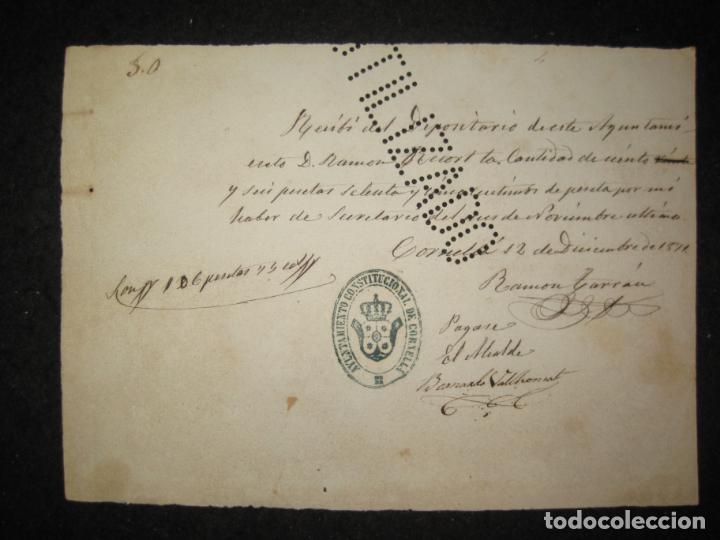 5.0
Recibí del Depositario de este Ayuntami
ento D. Ramon Ricort la Cantidad de ciento
y seis pesetas setenta y cinco centimos de peseta por mi
haber de Secretario del mes de Noviembre ultimo
Cornellá 12 de Diciembre de 187
Son 106 pesetas 75
Ramon Tarráu
AYUNTAMIENTO CONSTITUCIONAL DE CORNELLÁ
Pagase
El Alcalde
Bernardo
todocoleccion
todocoleccion.net